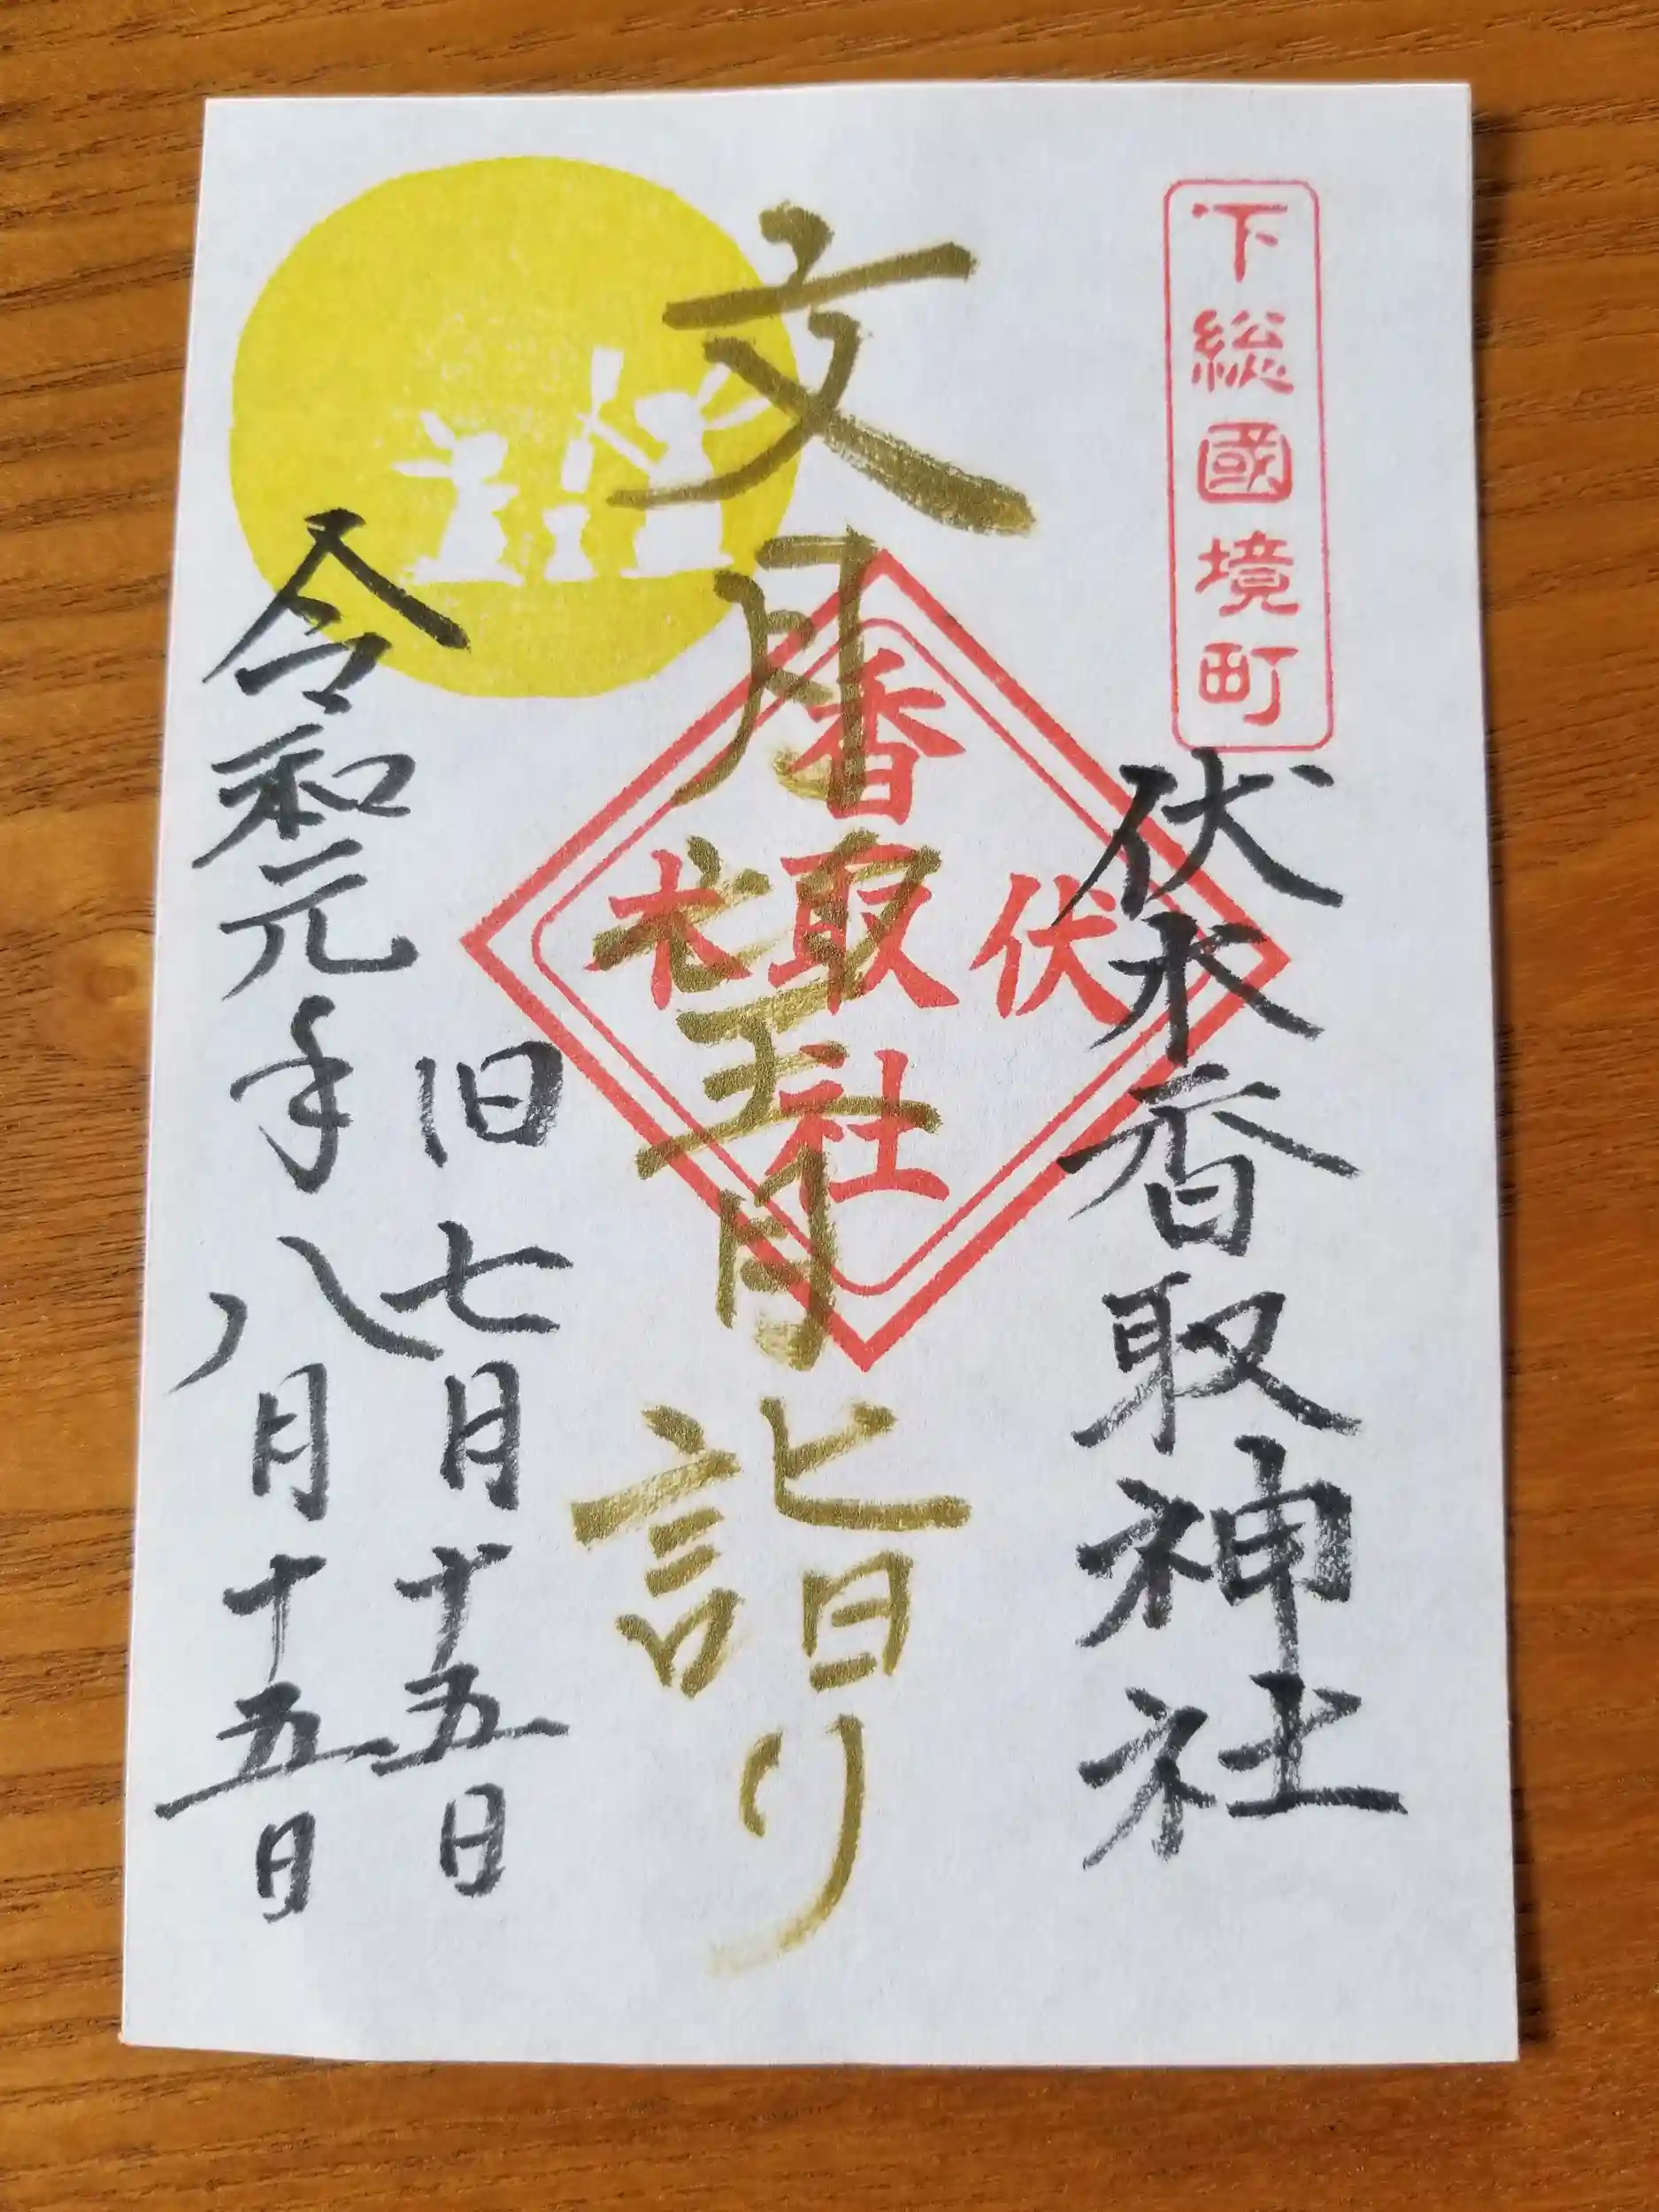 下総國境町
伏木香取神社
文月望月詣り
伏
香取社
木
旧七月十五日
令和元年八月十五日